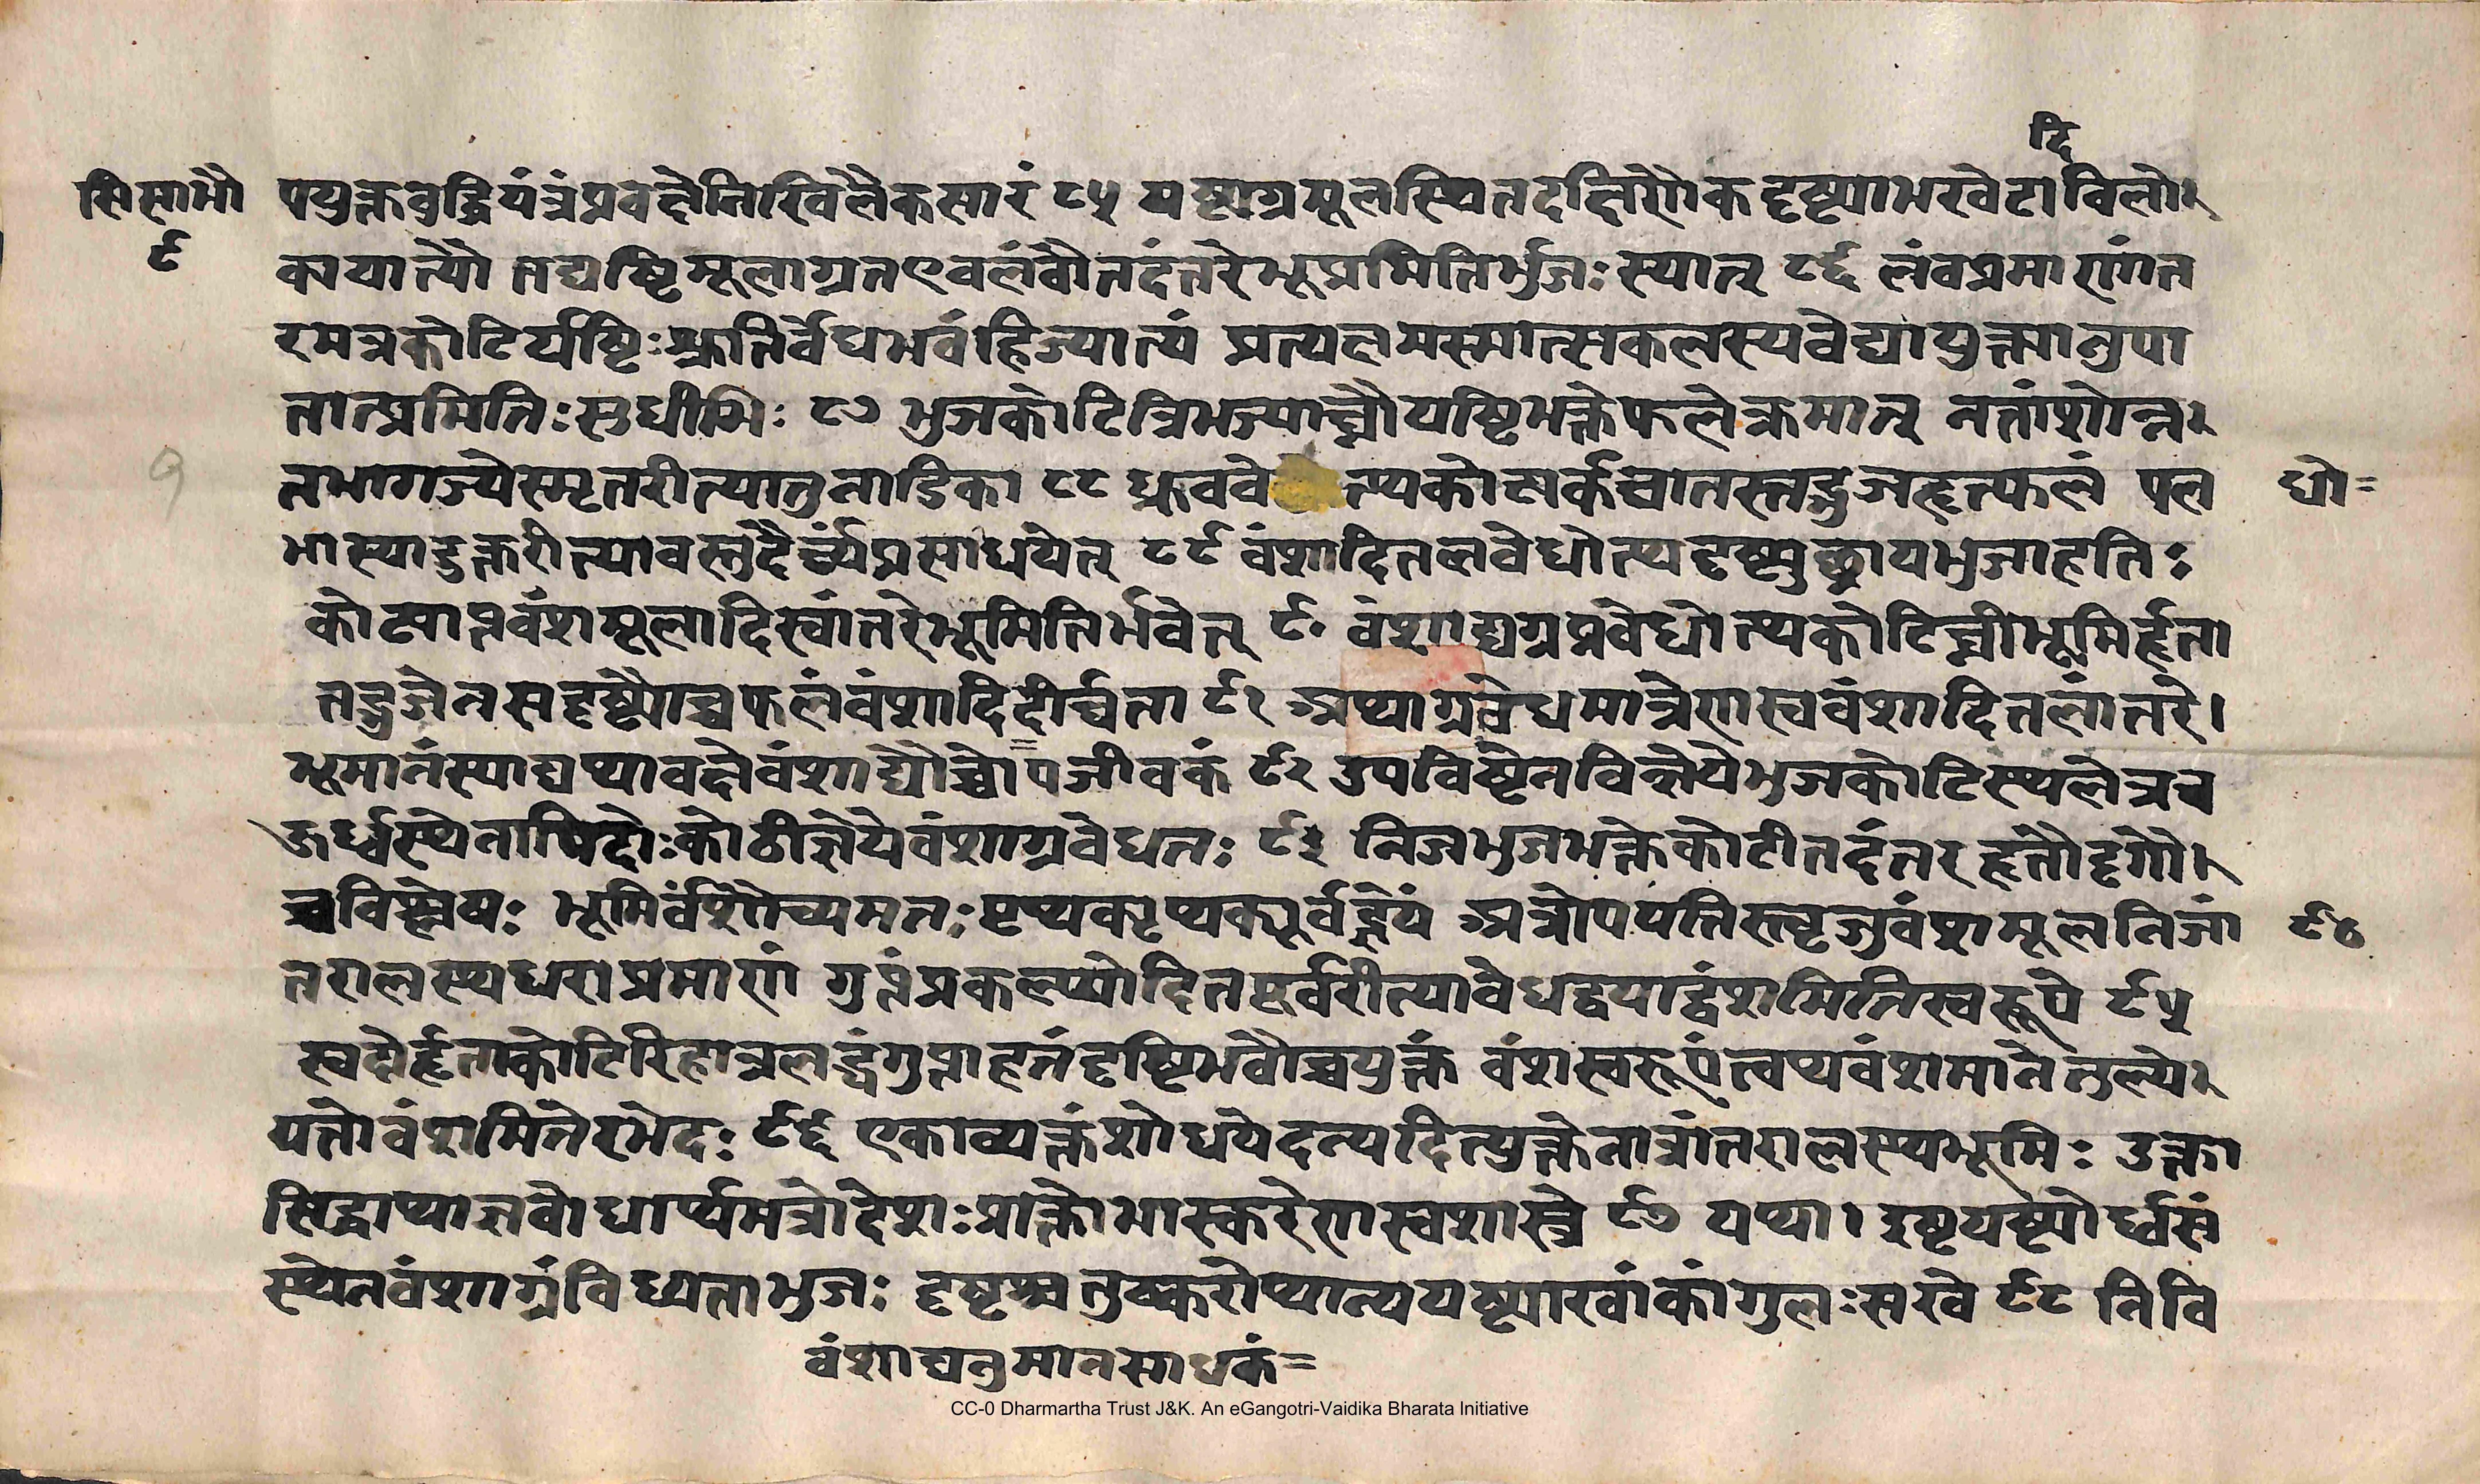 दि
सि सा भौ
९
पयुक्तबुद्धियंत्रंप्रवक्ष्येनिखिलैकसारं ८५ यष्ट्यग्रमूलस्थितदक्षिणैकदृष्ट्याभखेटाविलो
कायान्यौ तद्यष्टिमूलाग्रतएवलंबौतदंतरेभूप्रमितिर्भुजः स्यात् ८६ लंबप्रमाणांत
रमत्रकोटिर्यष्टिःश्रुतिर्वेधभवंहिज्यात्यं प्रत्यक्षमस्मात्सकलस्यवेद्यायुक्त्यानुपा
तात्प्रमितिःसुधीभिः ८७ भुजकोटित्रिभज्याघ्नौयष्टिभक्तेफलेक्रमात् नतांशोन्न
तभागज्येस्मृतरीत्यातुनाडिका ८८ ध्रुववे त्थकोटार्कघातस्तद्भुजहृत्फलं पल
धो=
भास्यादुक्तरीत्यावस्तुदैर्घ्यंप्रसाधयेत् ८९ वंशादितलवेधोत्थदृष्ट्युछ्रायभुजाहतिः
कोट्याप्तवंशमूलादिस्वांतरेभूमितिर्भवेत् ९० वंशाद्यग्रप्रवेधोत्थकोटिघ्नीभूमिर्हृता
तद्भुजेनसदृष्ट्यौच्चफलंवंशादिदीर्घता ९१ अथाग्रवेधमात्रेणस्ववंशादितलांतरे।
भूमानंस्याद्यथावक्ष्येवंशाद्यौच्चोपजीवकं ९२ उपविष्टेनविज्ञेयेभुजकोटिस्थलेत्रच
ऊर्ध्वस्थेनापिदोःकोठीज्ञेयेवंशाग्रवेधतः ९३ निजभुजभक्तेकोटीतदंतरहृतौदृगौ।
च्चविश्लेषः भूमिर्वंशौच्यमतःपृथक्पृथक्पूर्वद्ज्ञेयं अत्रोपपत्तिस्तृजुवंशमूलनिजां
९४
तरालस्यधराप्रमाणं गुप्तंप्रकल्प्योदितपूर्वरीत्यावेधद्वयाद्वंशमितिस्वरूपे ९५
स्वदोर्हृताकोटिरिहात्रलब्धंगुप्ताहतंदृष्टिभवौच्चयुक्तं वंशस्वरूपंत्वथवंशमानेतुल्ये
यतोवंशमितेरभेदः ९६ एकाव्यक्तंशोधयेदन्यदित्युक्तेनात्रांतरालस्यभूमिः उक्ता
सिद्धाथाज्ञबोधार्थमत्रोदेशःप्राक्तोभास्करेणस्वशास्त्रे ९७ यथा। इष्टयष्ट्योर्ध्वसं
स्थेनवंशाग्रंविध्यताभुजः दृष्टश्चतुष्करोथान्ययष्ट्याखांकांगुलःसखे ९८ निवि
वंशाद्यनुमानसाधकं=
CC-0 Dharmartha Trust J&K. An eGangotri-Vaidika Bharata Initiative